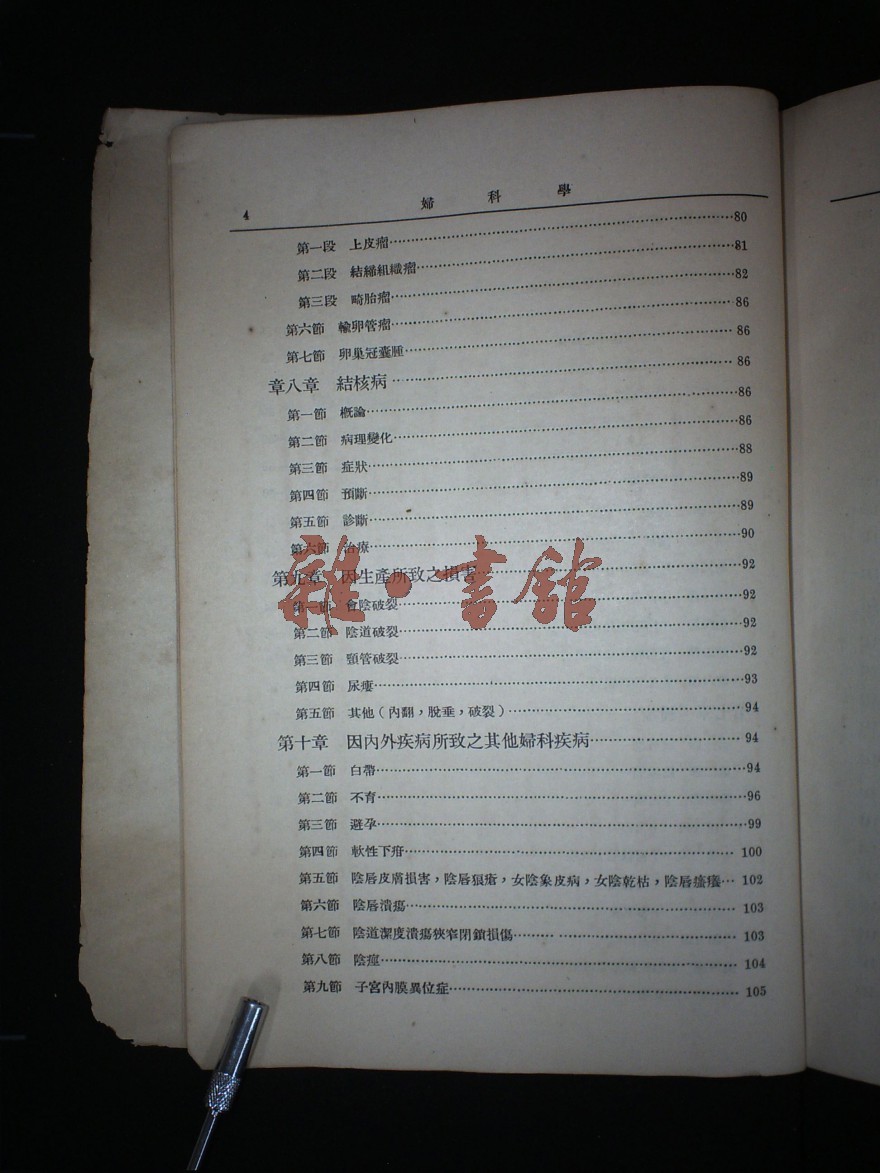 4 婦科學
第一段 上皮瘤……80
第二段 結締組織瘤……81
第三段 畸胎瘤……82
第六節 輸卵管瘤……86
第七節 卵巢冠囊腫……86
章八章 結核病……86
第一節 概論……86
第二節 病理變化……86
第三節 症狀……88
第四節 預斷……89
第五節 診斷……89
第六節 治療……90
第九章 因生產所致之損害……92
第一節 會陰破裂……92
第二節 陰道破裂……92
第三節 頸管破裂……92
第四節 尿瘻……93
第五節 其他(內翻,脫垂,破裂)……94
第十章 因內外疾病所致之其他婦科疾病……94
第一節 白帶……94
第二節 不育……96
第三節 避孕……99
第四節 軟性下疳……100
第五節 陰唇皮膚損害,陰唇狼瘡,女陰象皮病,女陰乾枯,陰唇瘙癢…102
第六節 陰唇潰瘍……103
第七節 陰道潔度潰瘍狹窄閉鎖損傷……103
第八節 陰痙……104
第九節 子宮內膜異位症……105
雜·書館